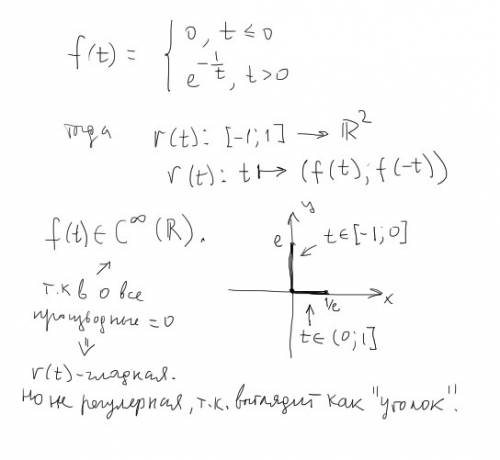 f(t) = { 0, t ≤ 0
e^{-1/t}, t > 0
тогда r(t): [-1; 1] → ℝ²
r(t): t ↦ (f(t); f(-t))
f(t) ∈ C^∞(ℝ).
т.к в 0 все
производные = 0
⇓
r(t) - гладкая.
но не регулерная, т.к. выглядит как "уголок".
y
e
t ∈ [-1; 0]
x
1/e
t ∈ (0; 1]